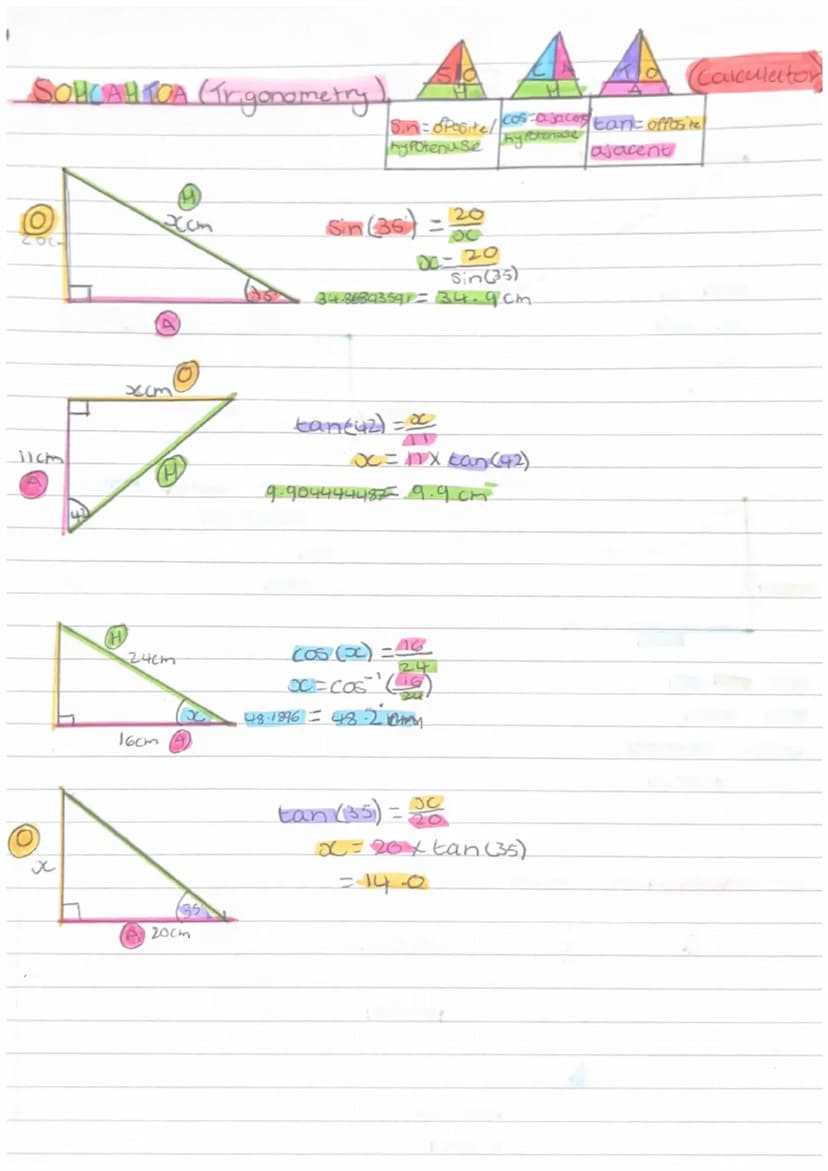 SOHCAHTOA (Trigonometry)
S O H
C A H
T O A
(Calculator
Sin = oposite/
hypotenuse
cos = ajacent
hypotenuse
tan = opposite
ajacent
H
xcm
O
20c
35
A
sin (35) = 20
x
x = 20
sin(35)
= 34.9cm
xcm O
11cm
A
H
42
tan(42) = x
11
x = 11 x tan(42)
9.904444487 = 9.9 cm
H
24cm
x
16cm A
cos (x) = 16
24
x = cos⁻¹ (16
24)
48.1896 = 48.2
O
x
35
A 20cm
tan (35) = x
20
x = 20 x tan (35)
= 14.0